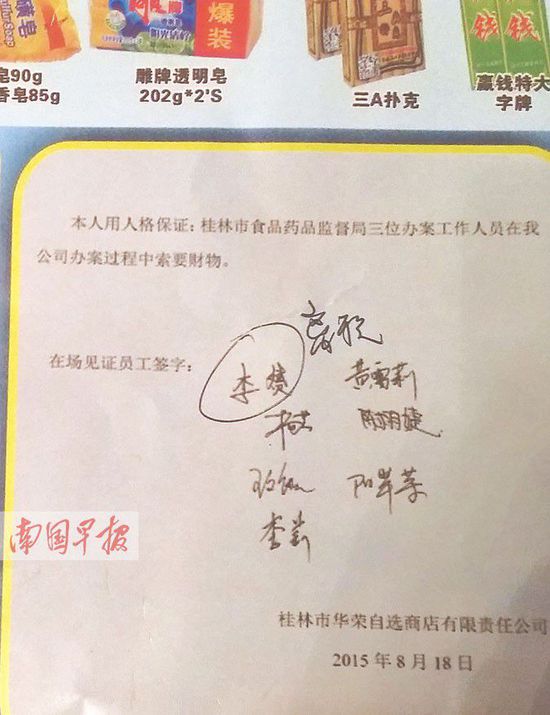 皂90g
香皂85g
爆
装
雕牌透明皂
202g*2'S
三A扑克
钱
钱
赢钱特大
字牌
本人用人格保证：桂林市食品药品监督局三位办案工作人员在我
公司办案过程中索要财物。
在场见证员工签字：
李
黄雪莉
南国早报
桂林市华荣自选商店有限责任公司
2015年8月18日